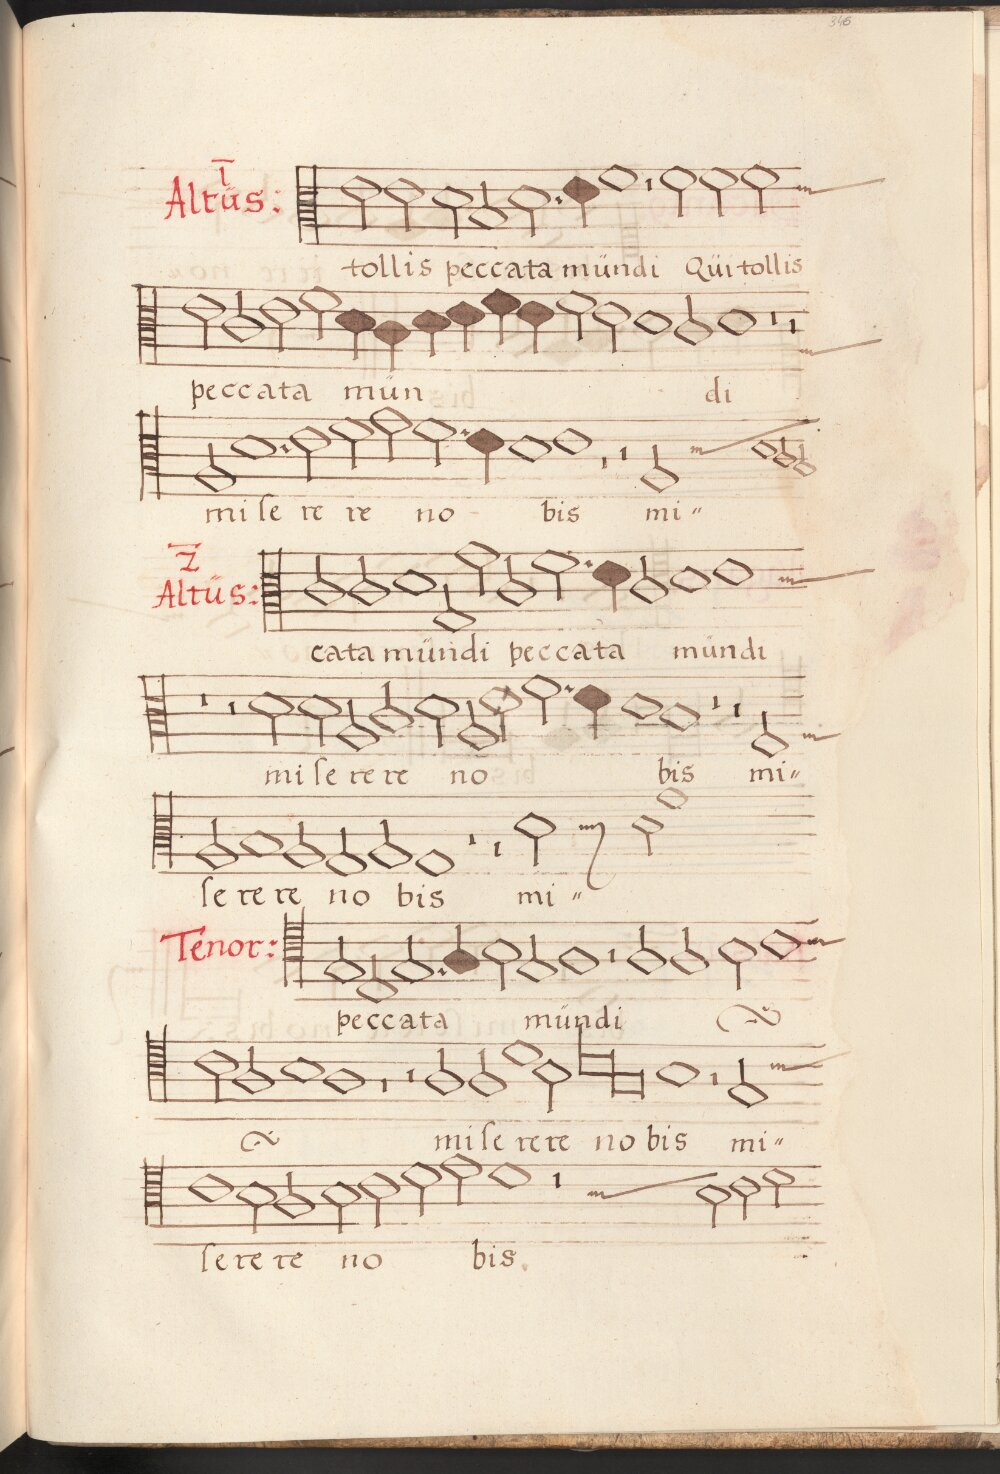 346
Altüs: 1
tollis peccata mündi Qüi tollis
peccata mün di
mi se re re no - bis mi "
Altüs: 2
cata mündi peccata mündi
mi se re re no bis mi "
se re re no bis mi "
Tenor:
peccata mündi
mi se re re no bis mi "
se re re no bis.